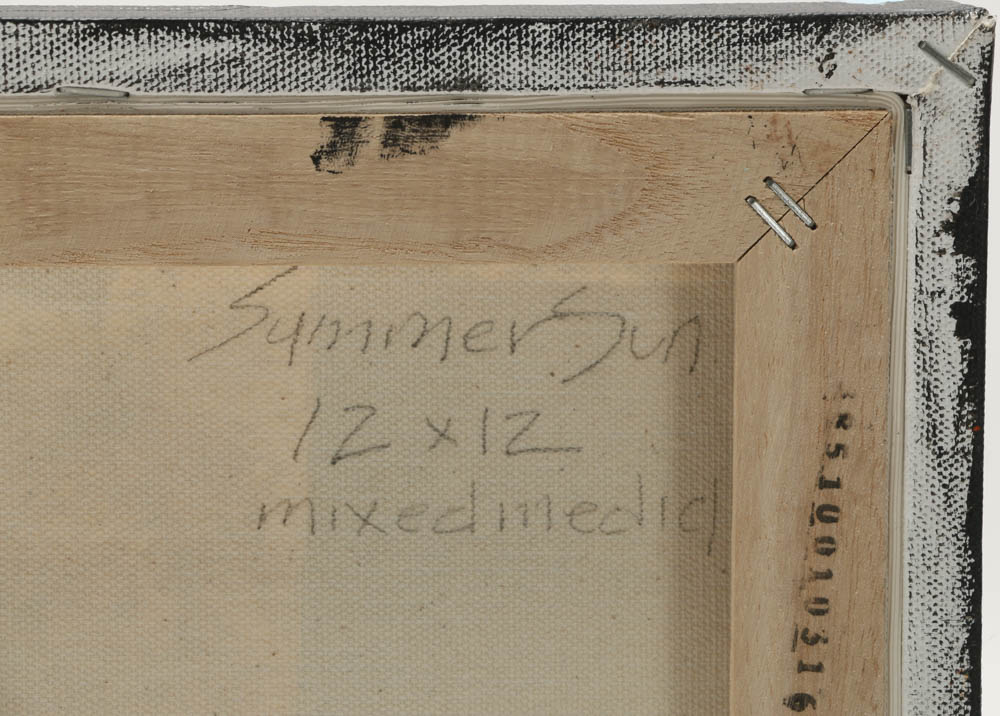 Summer Sun
12 x 12
mixed media